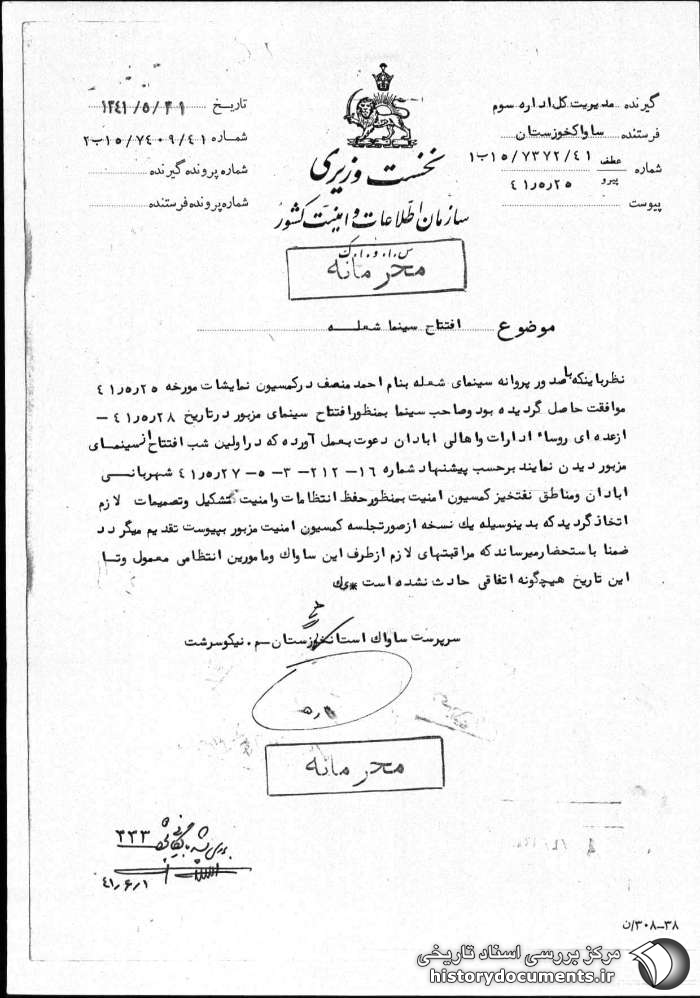 گیرنده مدیریت کل اداره سوم
فرستنده ساواک خوزستان
شماره عطف ۱۵/۷۳۷۲/۴۱ب۱
پیرو ۴۱٫۵٫۲۵
پیوست
تاریخ ۱۳۴۱/۵/۳۱
شماره ۱۵/۷۴۰۹/۴۱ب۲
شماره پرونده گیرنده
شماره پرونده فرستنده
نخست وزیری
سازمان اطلاعات و امنیت کشور
س.ا.و.ا.ک
محرمانه
موضوع افتتاح سینما شعله
نظرباینکه با صدور پروانه سینمای شعله بنام احمد منصف درکمسیون نمایشات مورخه ۴۱٫۵٫۲۵
موافقت حاصل گردیده بود وصاحب سینما بمنظورافتتاح سینمای مزبور درتاریخ ۴۱٫۵٫۲۸ –
ازعده ای روساء ادارات واهالی ابادان دعوت بعمل آورده که دراولین شب افتتاح از سینمـای
مزبور دیدن نمایند برحسب پیشنهاد شماره ۱۶– ۲۱۲– ۳– ۵– ۴۱٫۵٫۲۷ شهربانـی
ابادان ومناطق نفتخیز کمسیون امنیت بمنظورحفظ انتظامات وامنیت تشکیل وتصمیمات لازم
اتخاذ گردید که بدینوسیله یك نسخه ازصورتجلسه کمسیون امنیت مزبور بپیوست تقدیم میگردد
ضمنا باستحضارمیرساند که مراقبتهای لازم ازطرف این ساواك ومامورین انتظامی معمول وتـا
این تاریخ هیچگونه اتفاقی حادث نشده است *ی.ك
سرپرست ساواك استان خوزستان – م. نیکوسرشت
محرمانه
۳۳۳
۴۱٫۶٫۱
۳۸–۳۰۸/ن
مرکز بررسی اسناد تاریخی
historydocuments.ir